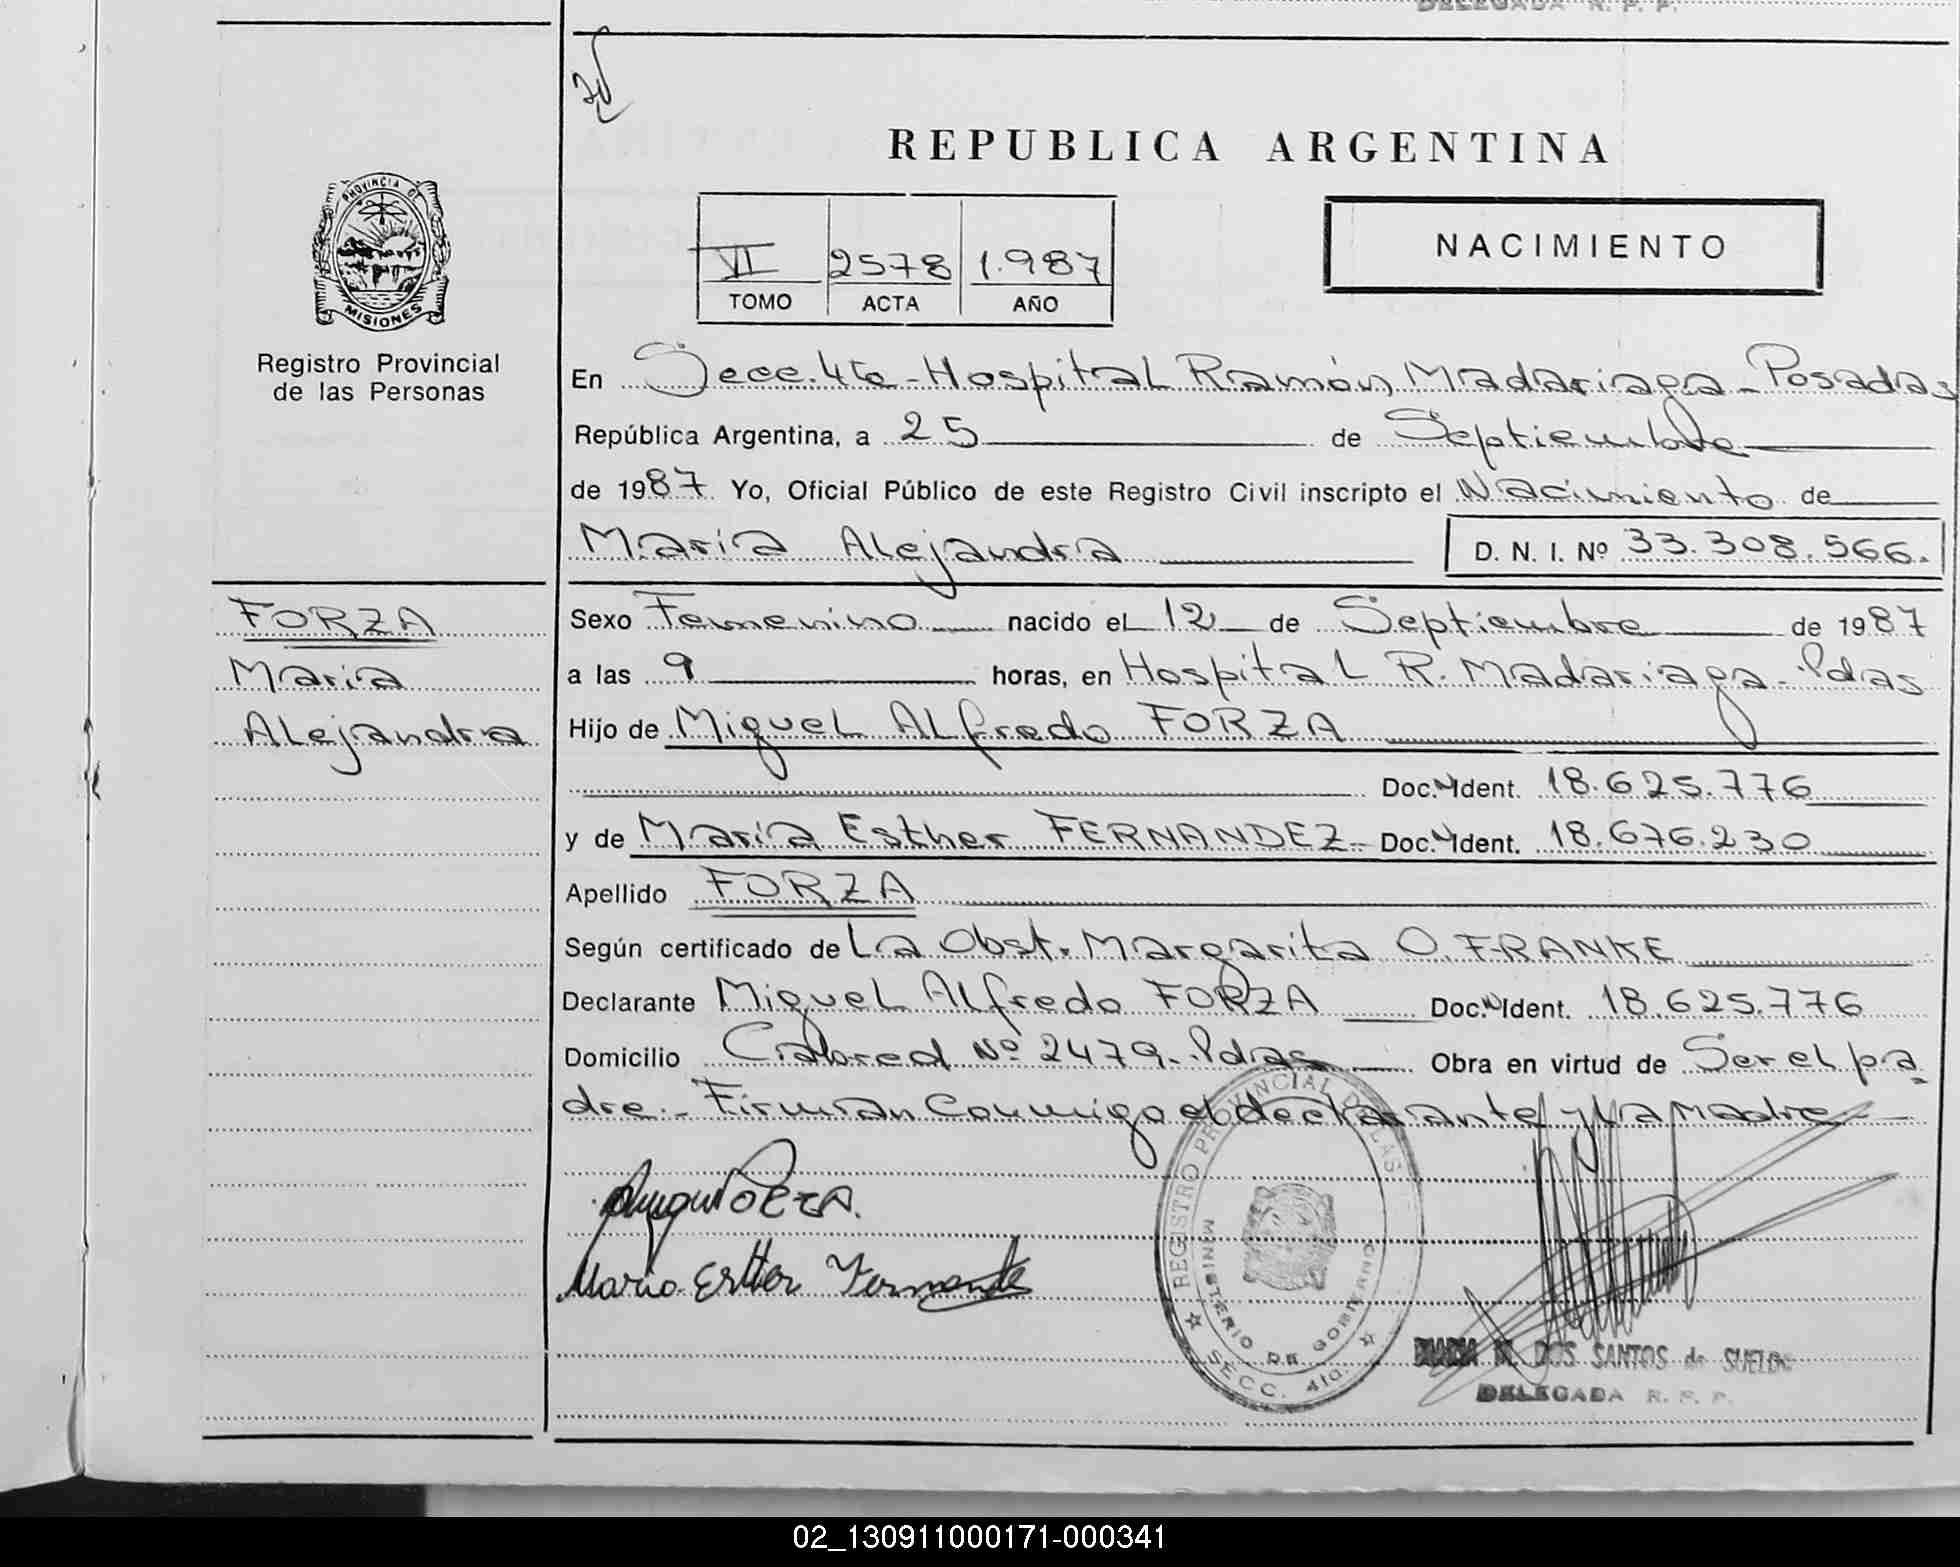 DELEGADA R. P. P.
REPUBLICA ARGENTINA
PROVINCIA DE
MISIONES
Registro Provincial
de las Personas
VI 2578 1.987
TOMO ACTA AÑO
NACIMIENTO
En Secc. 4ta - Hospital Ramón Madariaga - Posadas
República Argentina, a 25 de Septiembre
de 1987 Yo, Oficial Público de este Registro Civil inscripto el Nacimiento de
María Alejandra D. N. I. Nº 33.308.566.
FORZA
María
Alejandra
Sexo Femenino nacido el 12 de Septiembre de 1987
a las 9 horas, en Hospital R. Madariaga - Pdas
Hijo de Miguel Alfredo FORZA
Doc. N Ident. 18.625.776
y de María Esther FERNANDEZ - Doc. N Ident. 18.676.230
Apellido FORZA
Según certificado de La Obst. Margarita O. FRANKE
Declarante Miguel Alfredo FORZA Doc. N Ident. 18.625.776
Domicilio Nº 2479 - Pdas Obra en virtud de Ser el pa
dre.- Firman Conmigo el declarante y la Madre -
REGISTRO PROVINCIAL DE LAS
MINISTERIO DE GOBIERNO
SECC. 4ta.
Maria Esther Fernandez
MARIA DOS SANTOS de SUELDO
DELEGADA R. P. P.
02_130911000171-000341